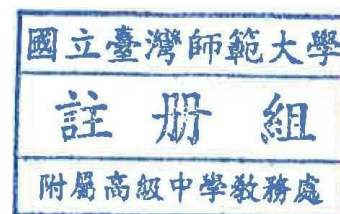 國立臺灣師範大學
註册組
附屬高級中學教務處